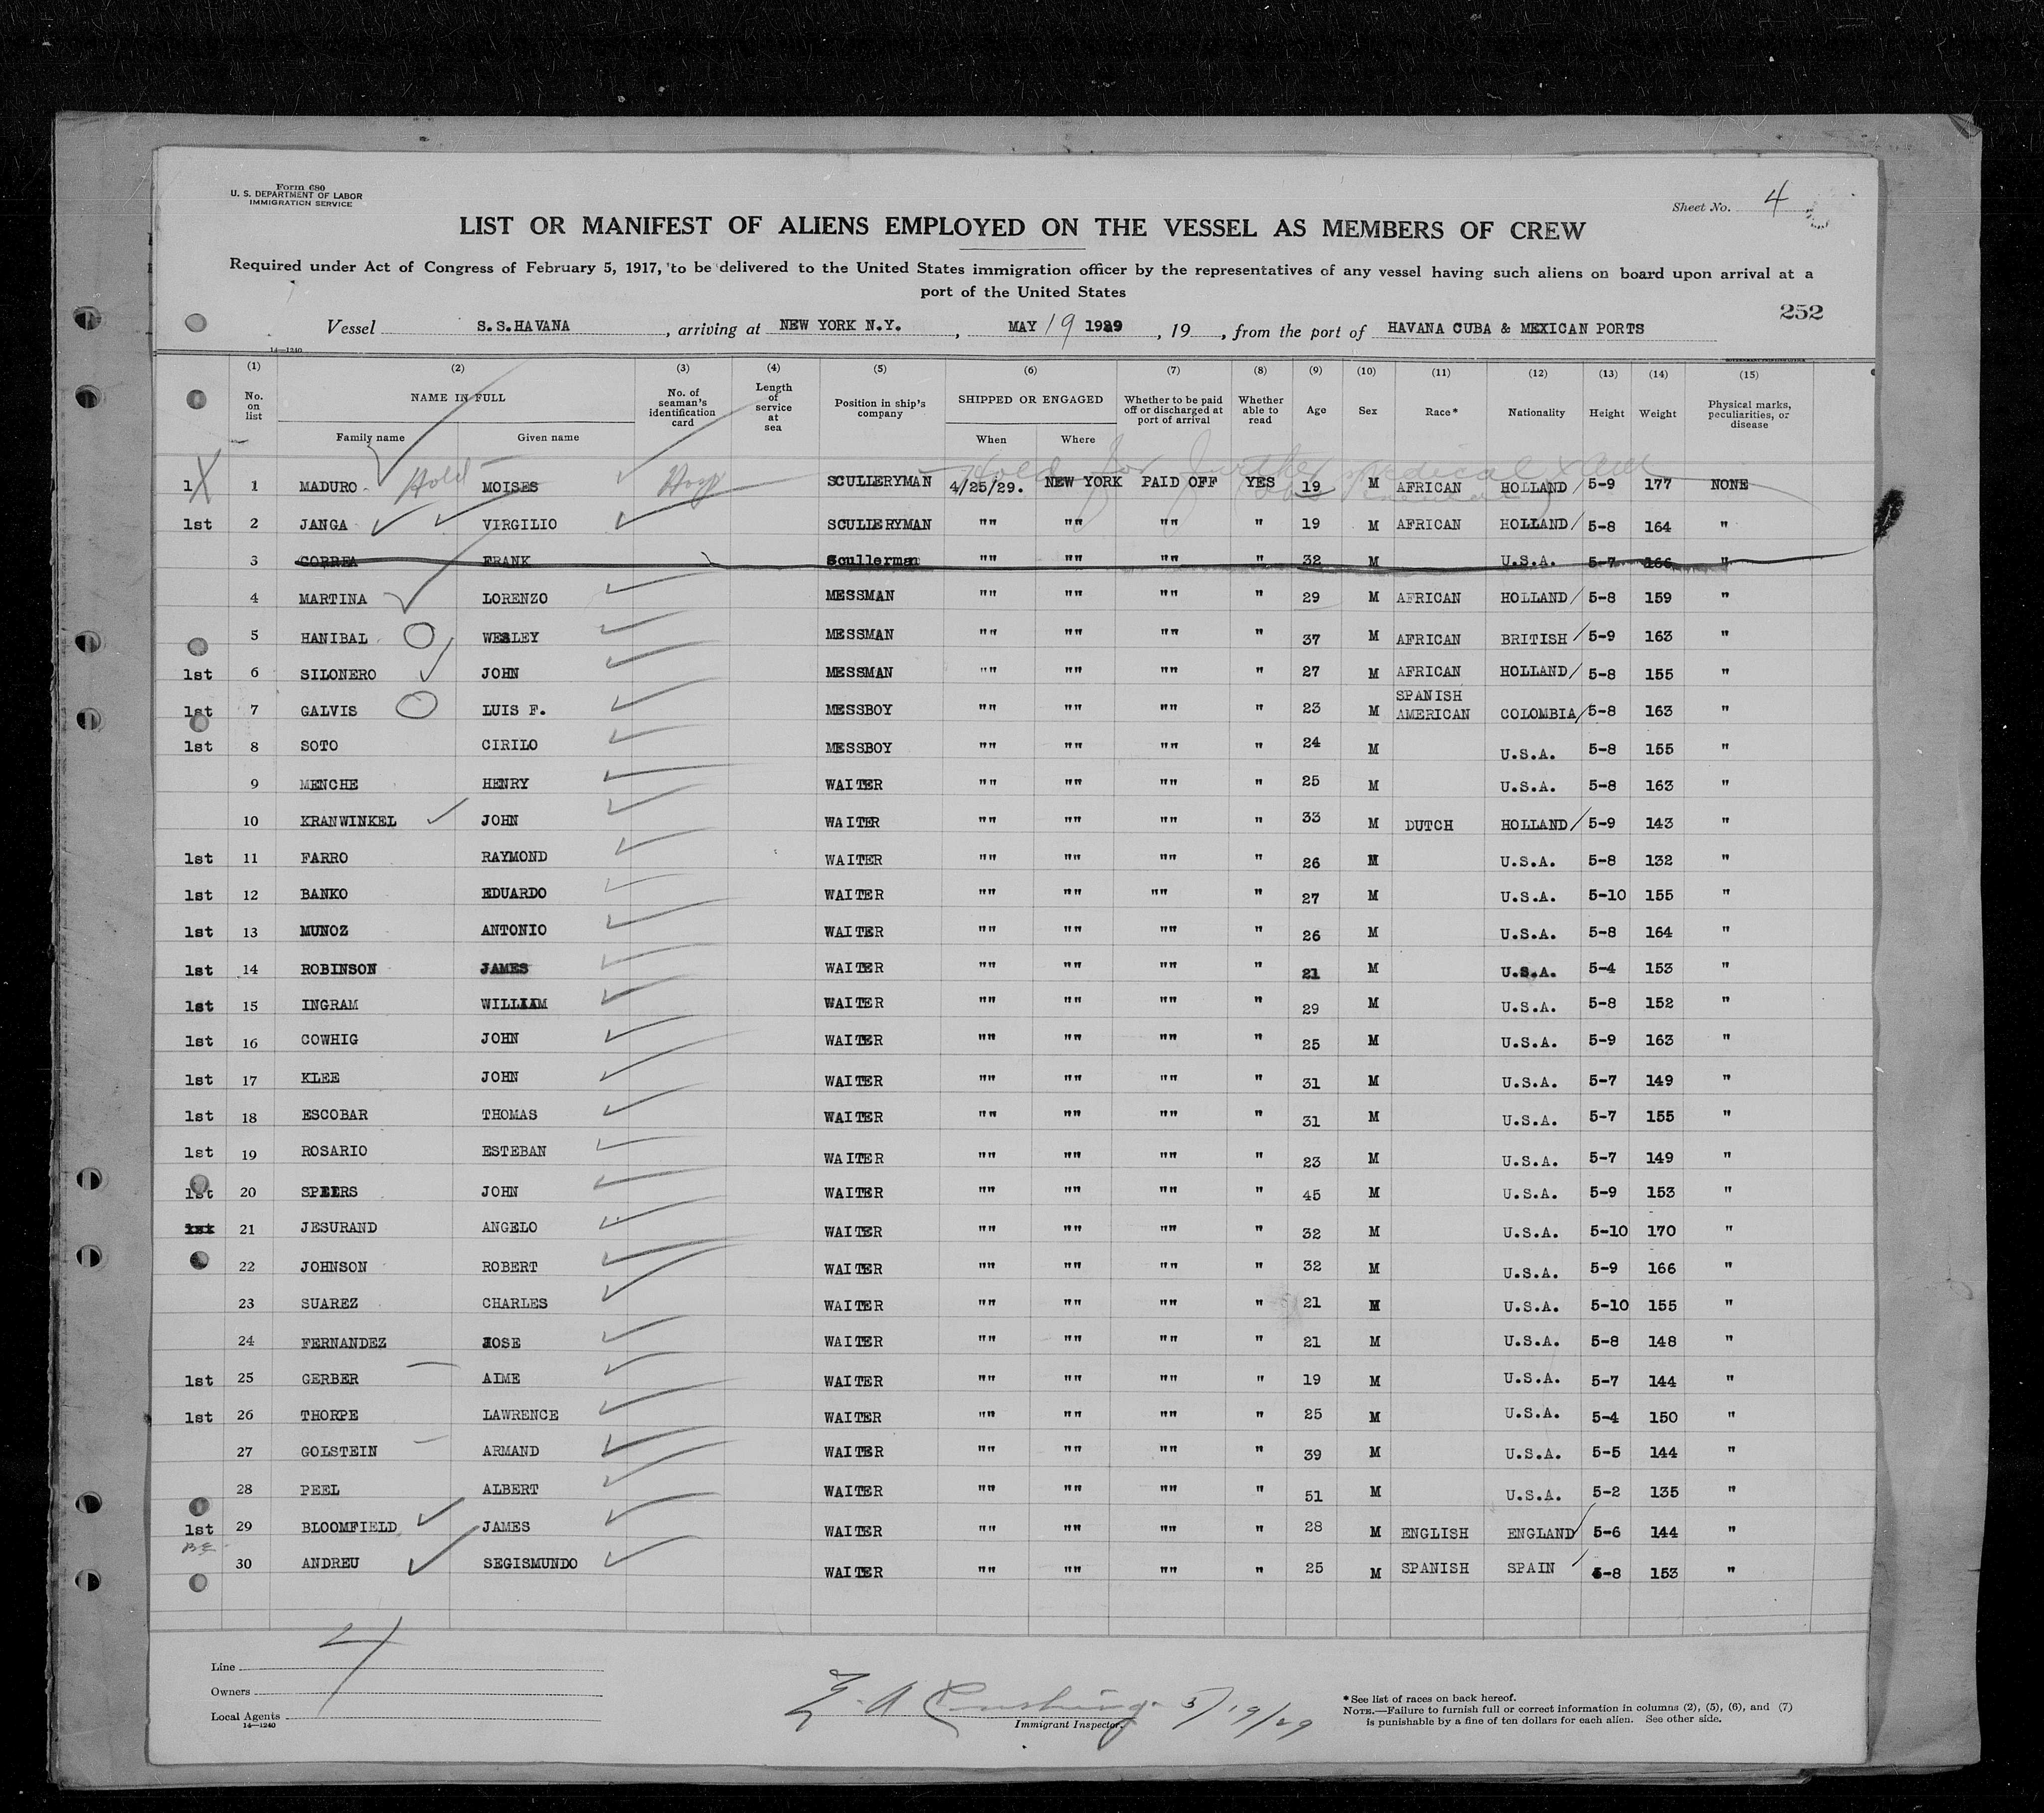 Form 680
U. S. DEPARTMENT OF LABOR
IMMIGRATION SERVICE
Sheet No. 4
LIST OR MANIFEST OF ALIENS EMPLOYED ON THE VESSEL AS MEMBERS OF CREW
Required under Act of Congress of February 5, 1917, to be delivered to the United States immigration officer by the representatives of any vessel having such aliens on board upon arrival at a
port of the United States
252
Vessel S.S.HAVANA, arriving at NEW YORK N.Y., MAY 19 1929, 19, from the port of HAVANA CUBA & MEXICAN PORTS
14—1240
(1) (2) (3) (4) (5) (6) (7) (8) (9) (10) (11) (12) (13) (14) (15)
No. on list NAME IN FULL No. of seaman's identification card Length of service at sea Position in ship's company SHIPPED OR ENGAGED Whether to be paid off or discharged at port of arrival Whether able to read Age Sex Race* Nationality Height Weight Physical marks, peculiarities, or disease
Family name Given name When Where
Hold for further medical exam
1 X 1 MADURO Hold MOISES Hosp SCULLERYMAN 4/25/29. NEW YORK PAID OFF YES 19 M AFRICAN HOLLAND 5-9 177 NONE
1st 2 JANGA VIRGILIO SCULLERYMAN "" "" "" " 19 M AFRICAN HOLLAND 5-8 164 "
3 CORREA FRANK Scullerman "" "" "" " 32 M U.S.A. 5-7 166 "
4 MARTINA LORENZO MESSMAN "" "" "" " 29 M AFRICAN HOLLAND 5-8 159 "
5 HANIBAL WESLEY MESSMAN "" "" "" " 37 M AFRICAN BRITISH 5-9 163 "
1st 6 SILONERO JOHN MESSMAN "" "" "" " 27 M AFRICAN HOLLAND 5-8 155 "
1st 7 GALVIS LUIS F. MESSBOY "" "" "" " 23 M SPANISH AMERICAN COLOMBIA 5-8 163 "
1st 8 SOTO CIRILO MESSBOY "" "" "" " 24 M U.S.A. 5-8 155 "
9 MENCHE HENRY WAITER "" "" "" " 25 M U.S.A. 5-8 163 "
10 KRANWINKEL JOHN WAITER "" "" "" " 33 M DUTCH HOLLAND 5-9 143 "
1st 11 FARRO RAYMOND WAITER "" "" "" " 26 M U.S.A. 5-8 132 "
1st 12 BANKO EDUARDO WAITER "" "" "" " 27 M U.S.A. 5-10 155 "
1st 13 MUNOZ ANTONIO WAITER "" "" "" " 26 M U.S.A. 5-8 164 "
1st 14 ROBINSON JAMES WAITER "" "" "" " 21 M U.S.A. 5-4 153 "
1st 15 INGRAM WILLIAM WAITER "" "" "" " 29 M U.S.A. 5-8 152 "
1st 16 COWHIG JOHN WAITER "" "" "" " 25 M U.S.A. 5-9 163 "
1st 17 KLEE JOHN WAITER "" "" "" " 31 M U.S.A. 5-7 149 "
1st 18 ESCOBAR THOMAS WAITER "" "" "" " 31 M U.S.A. 5-7 155 "
1st 19 ROSARIO ESTEBAN WAITER "" "" "" " 23 M U.S.A. 5-7 149 "
1st 20 SPEERS JOHN WAITER "" "" "" " 45 M U.S.A. 5-9 153 "
1st 21 JESURAND ANGELO WAITER "" "" "" " 32 M U.S.A. 5-10 170 "
22 JOHNSON ROBERT WAITER "" "" "" " 32 M U.S.A. 5-9 166 "
23 SUAREZ CHARLES WAITER "" "" "" " 21 M U.S.A. 5-10 155 "
24 FERNANDEZ JOSE WAITER "" "" "" " 21 M U.S.A. 5-8 148 "
1st 25 GERBER AIME WAITER "" "" "" " 19 M U.S.A. 5-7 144 "
1st 26 THORPE LAWRENCE WAITER "" "" "" " 25 M U.S.A. 5-4 150 "
27 GOLSTEIN ARMAND WAITER "" "" "" " 39 M U.S.A. 5-5 144 "
28 PEEL ALBERT WAITER "" "" "" " 51 M U.S.A. 5-2 135 "
1st 29 BLOOMFIELD JAMES WAITER "" "" "" " 28 M ENGLISH ENGLAND 5-6 144 "
30 ANDREU SEGISMUNDO WAITER "" "" "" " 25 M SPANISH SPAIN 5-8 153 "
Line
Owners
Local Agents
14—1240
E. A Cushing 5/19/29
Immigrant Inspector.
*See list of races on back hereof.
NOTE.—Failure to furnish full or correct information in columns (2), (5), (6), and (7)
is punishable by a fine of ten dollars for each alien. See other side.